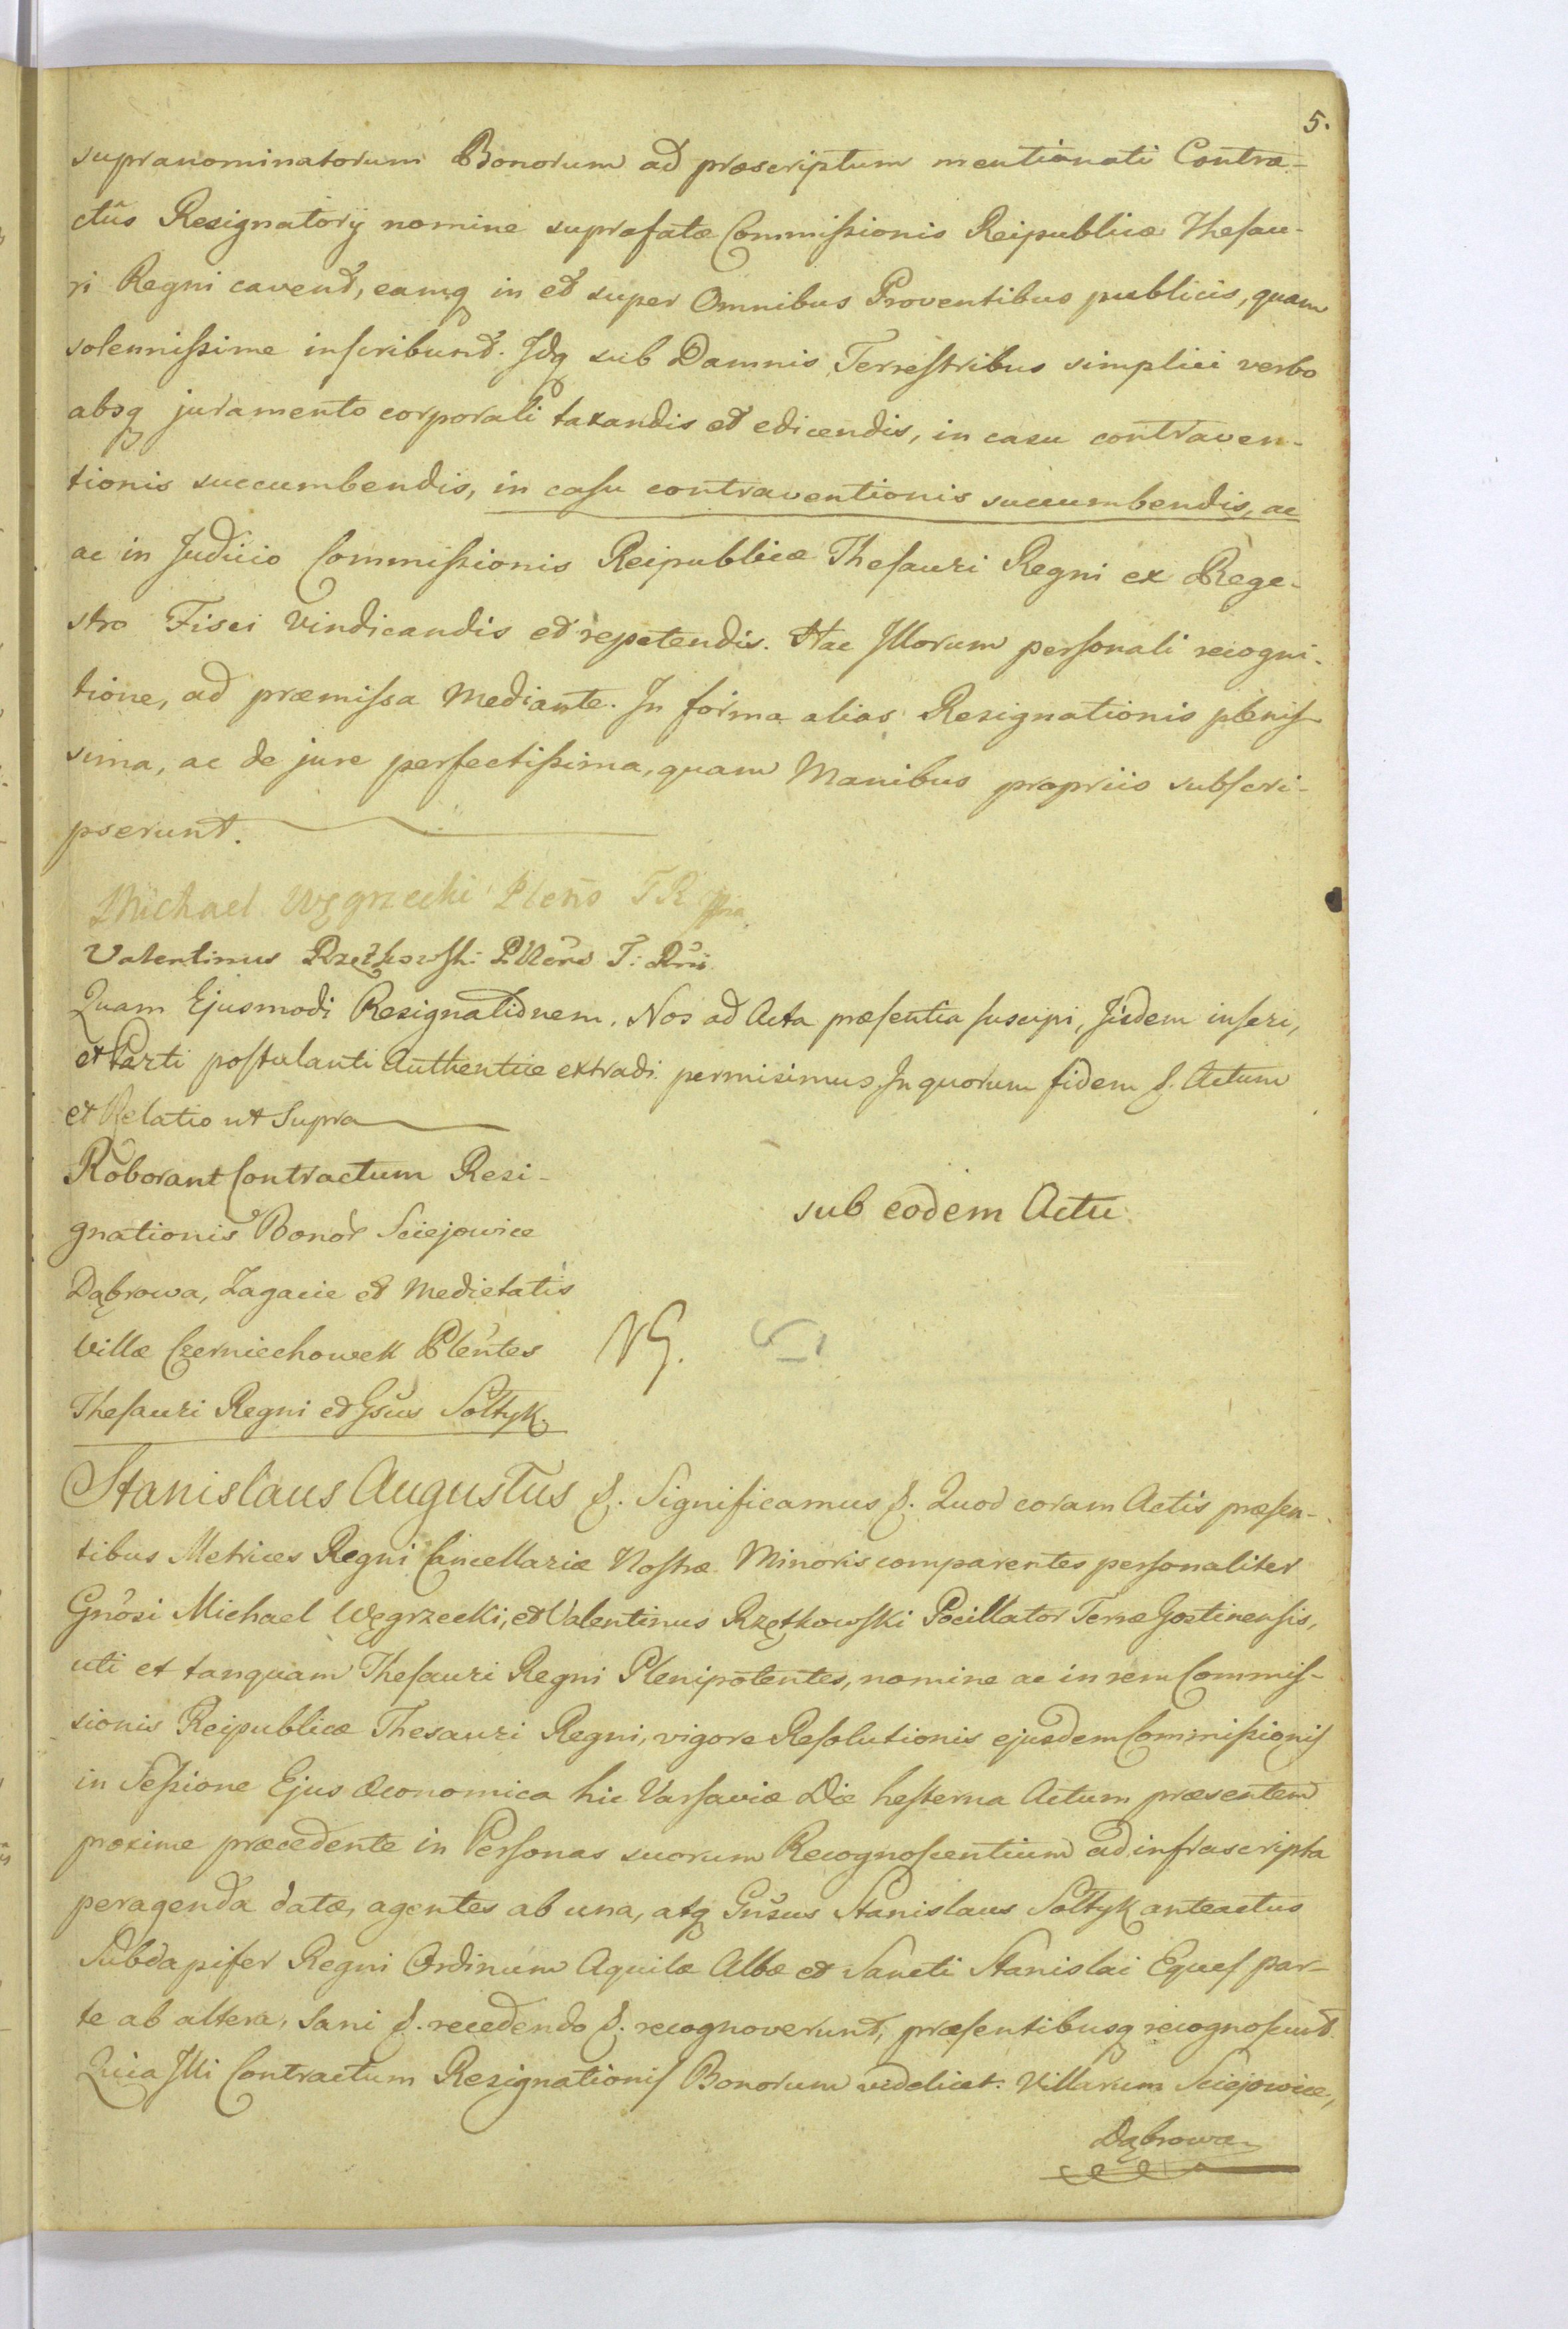 5.
supranominatorum Bonorum ad præscriptum mentionati Contra-
ctûs Resignatorÿ nomine suprafatæ Commissionis Reipublicæ Thesau-
ri Regni cavend, eamq in et super Omnibus Proventibus publicis, quam
solennissime inscribund. Idq sub Damnis Terrestribus simplici verbo
absq juramento corporali taxandis et edicendis, in casu contraven-
tionis succumbendis, in casu contraventionis succumbendis, ac
ac in Judicio Commissionis Reipublicæ Thesauri Regni ex Rege-
stro Fisci Vindicandis et repetendis. Hac Illorum personali recogni-
tione, ad præmissa mediante. In forma alias Resignationis plenis-
sima, ac de jure perfectissima, quam Manibus propriis subscri-
pserunt.
Michael Węgrzecki Pleñs T R
Valentinus Rzętkowski T:
Quam Ejusmodi Resignationem. Nos ad Acta præsentia suscipi, Iisdem inseri,
et Parti postulanti Authentice extradi permisimus. In quorum fidem &. Actum
et Relatio ut Supra
Roborant Contractum Resi-
gnationis Bonor Sciejowice
Dąbrowa, Zagacie et Medietatis
Villæ Czerniechowek Pleñtes
Thesauri Regni et Gsus Sołtyk.
sub eodem Actu
NG. 5
Stanislaus Augustus &. Significamus &. Quod coram Actis præsen-
tibus Metrices Regni Cancellariæ Nostræ Minoris comparentes personaliter
Gnosi Michael Węgrzecki, et Valentinus Rzętkowski Pocillator Terræ Gostinensis,
uti et tanquam Thesauri Regni Plenipotentes, nomine ac in rem Commis-
sionis Reipublicæ Thesauri Regni, vigore Resolutionis ejusdem Commissionis
in Sessione Ejus Œconomica hic Varsaviæ Die hesterna Actum præsentem
proxime præcedente in Personas suorum Recognoscentium ad infrascripta
peragenda datæ, agentes ab una, atq Gnsus Stanislaus Sołtyk anteactus
Subdapifer Regni Ordinum Aquilæ Albæ et Sancti Stanislai Eques par-
te ab altera, Sani &. recedendo &. recognoverunt, præsentibusq recognoscunt.
Quia Illi Contractum Resignationis Bonorum videlicet. Villarum Sciejowice,
Dąbrowa